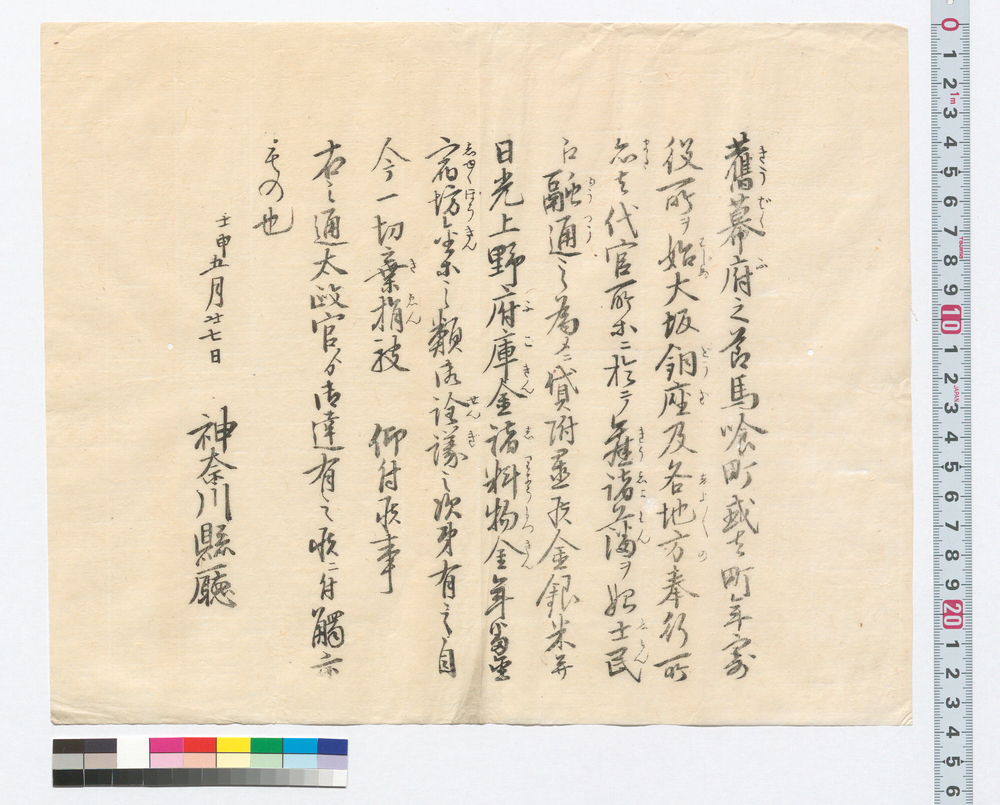 舊幕府之節馬喰町或ハ町年寄
役所ヲ始大坂銅座及各地方奉行所
亦ハ代官所等ニ於テ舊諸藩ヲ始士民
江融通之為メニ貸附置候金銀米并
日光上野府庫金諸料物金年番金
宿坊金等之類御詮議之次第有之自
今一切棄捐被 仰付候事
右之通太政官ゟ御達有之候ニ付觸示
もの也
壬申五月廿七日
神奈川縣廳